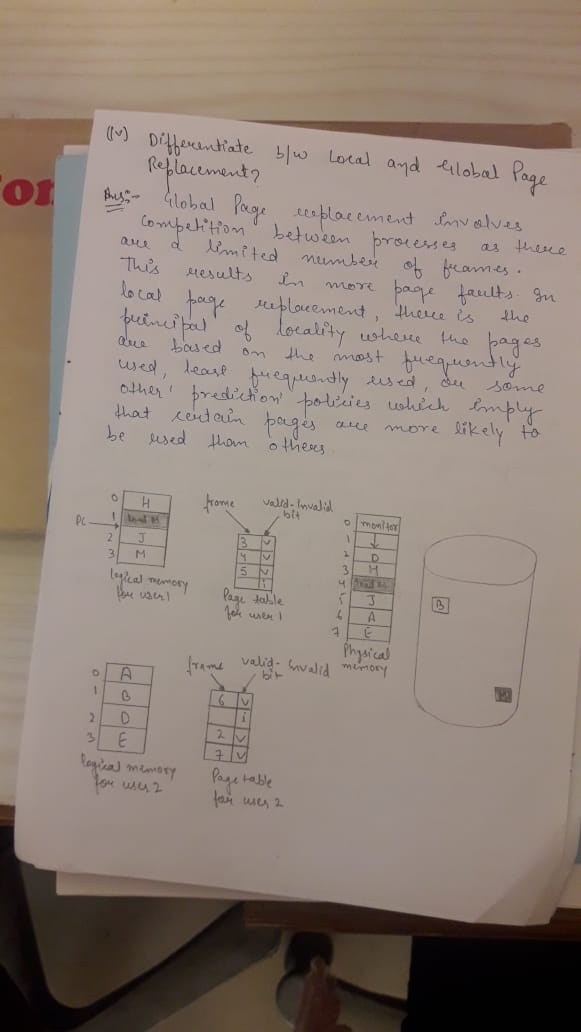 (iv) Differentiate b/w Local and Global Page
Replacement?
Ans:- Global Page replacement involves
competition between processes as there
are a limited number of frames.
This results in more page faults. In
local page replacement, there is the
principal of locality where the pages
are based on the most frequently
used, least frequently used, or some
other 'prediction' policies which imply
that certain pages are more likely to
be used than others.
or
0 H
1 load M
PC
2 J
3 M
logical memory
for user 1
frame valid-invalid
bit
3 v
4 v
5 v
i
Page table
for user 1
0 monitor
1
2 D
3 H
4 load M
5 J
6 A
7 E
Physical
memory
B
M
0 A
1 B
2 D
3 E
logical memory
for user 2
frame valid-invalid
bit
6 v
i
2 v
7 v
Page table
for user 2